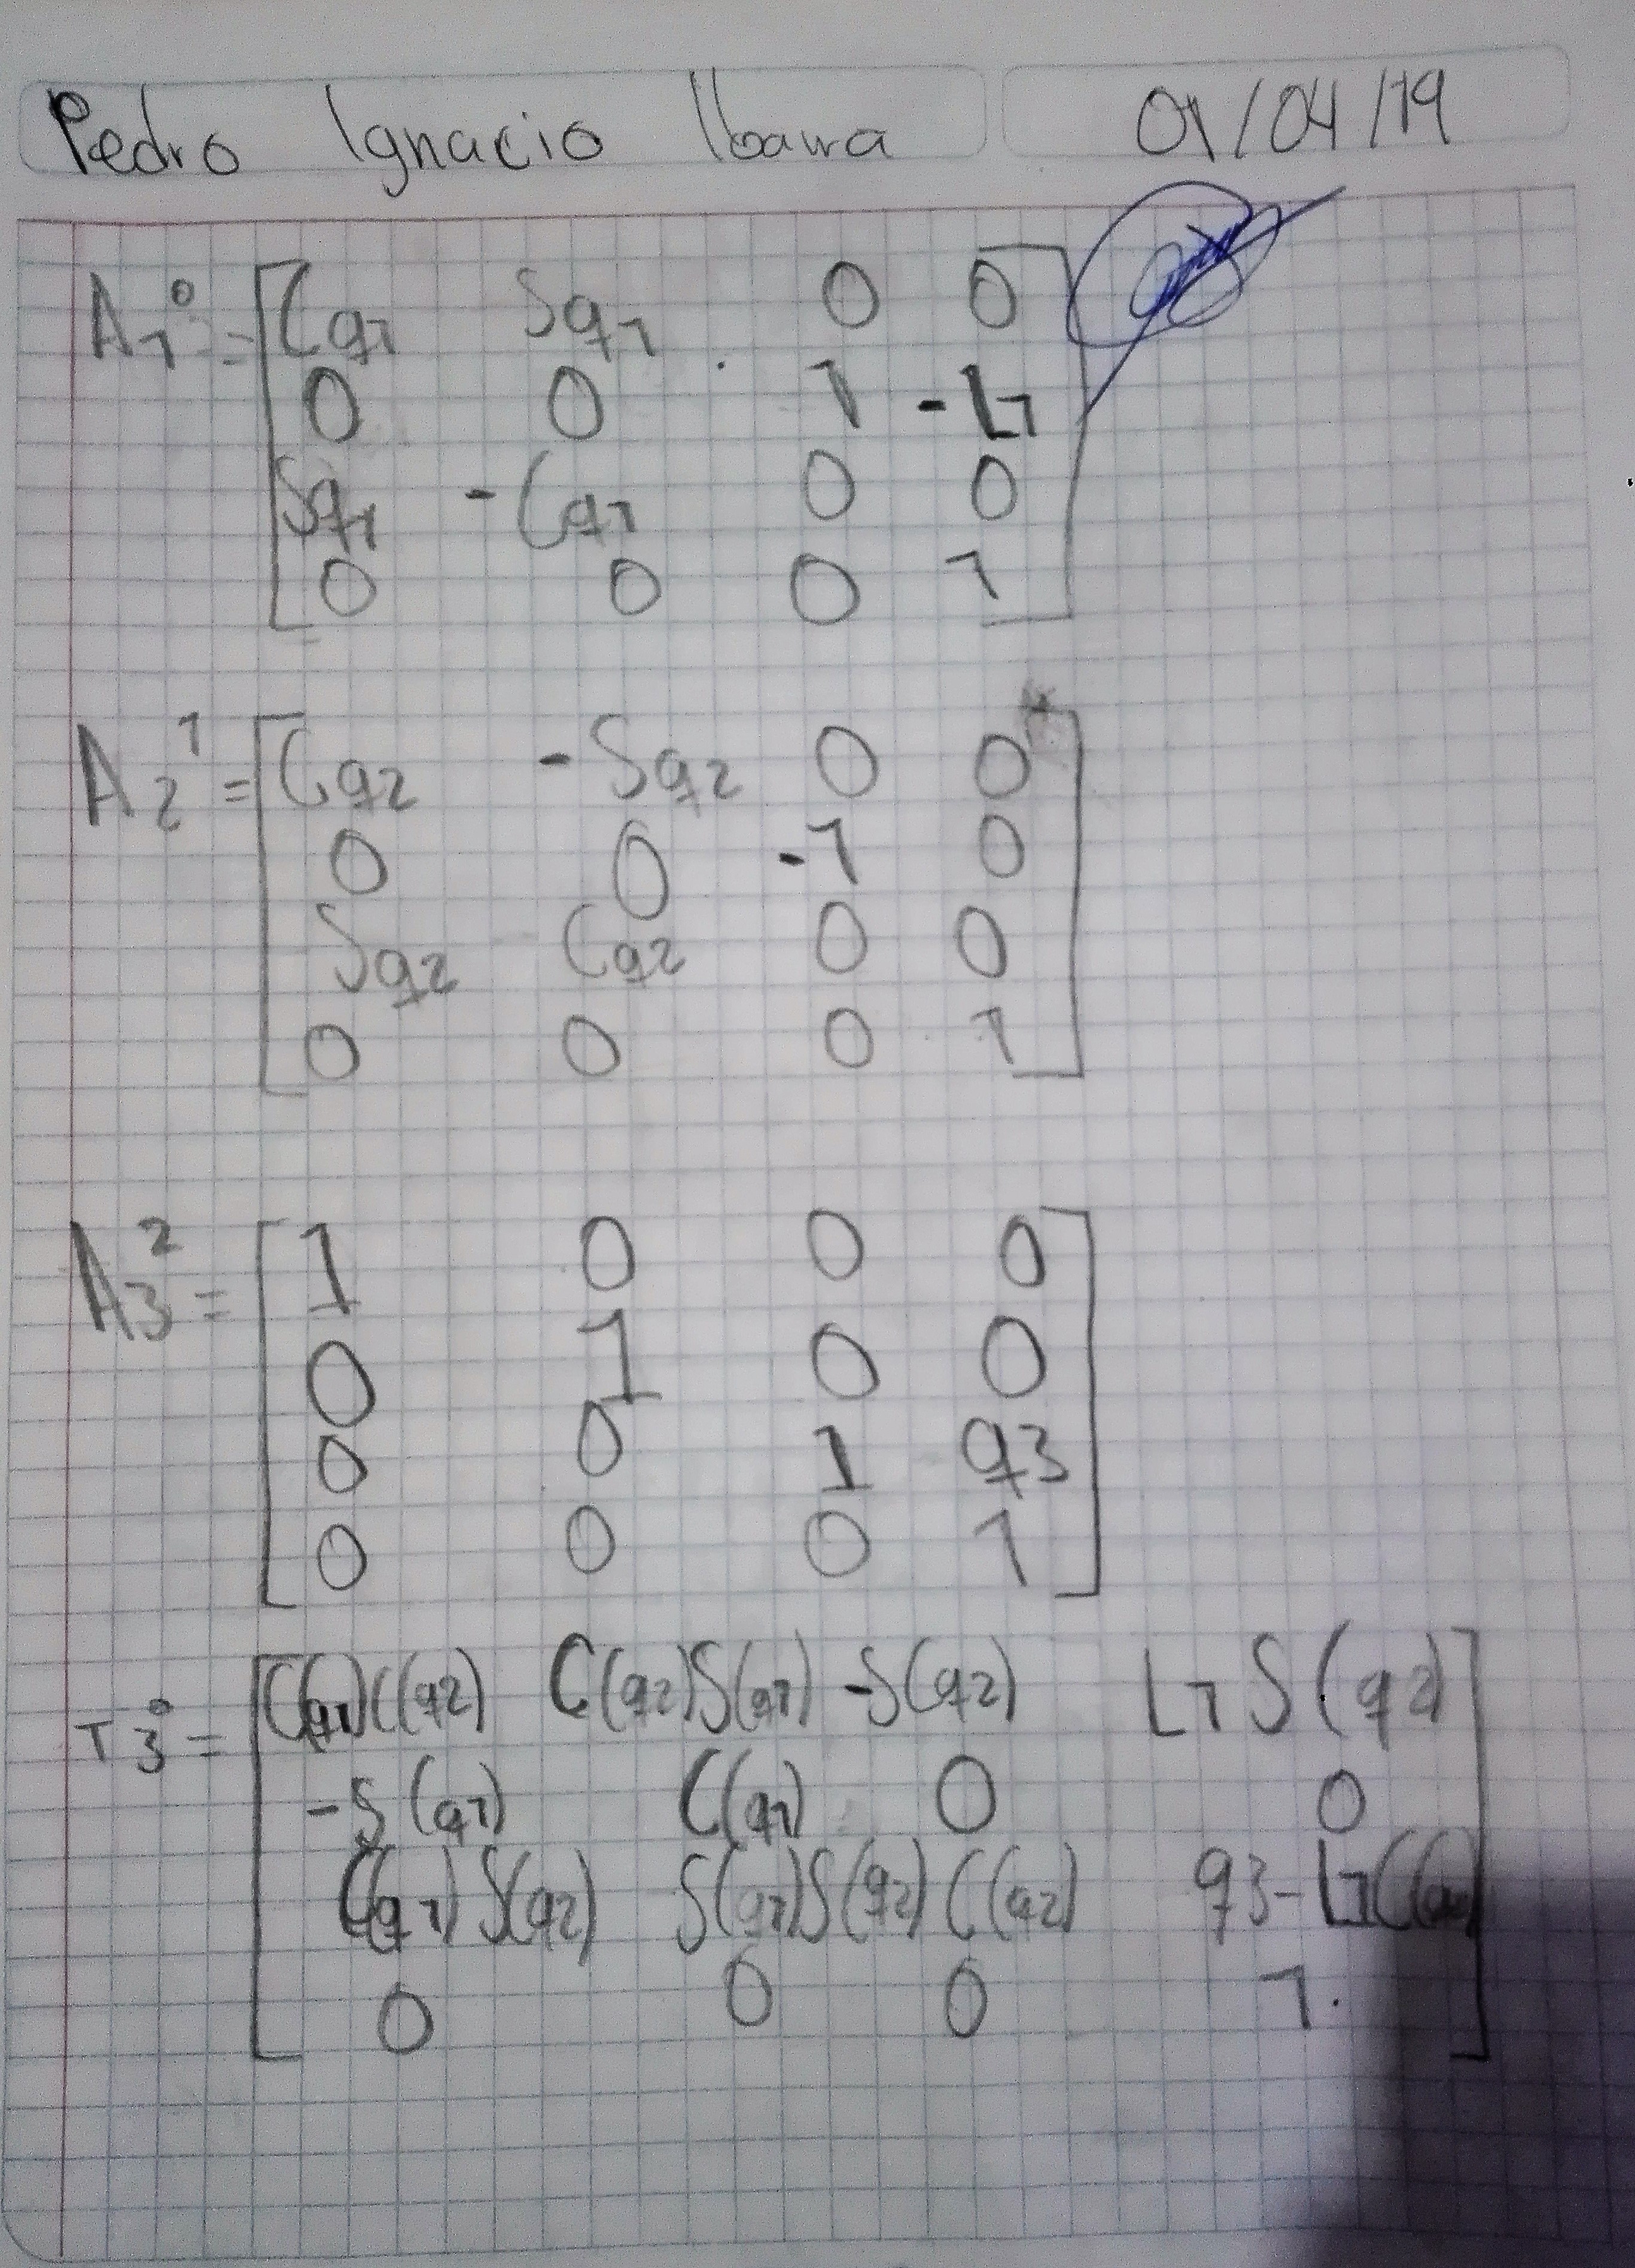 Pedro Ignacio Ibarra 01/04/19
A1^0 = [Cq1 Sq1 0 0
0 0 1 -L1
Sq1 -Cq1 0 0
0 0 0 1]
A2^1 = [Cq2 -Sq2 0 0
0 0 -1 0
Sq2 Cq2 0 0
0 0 0 1]
A3^2 = [1 0 0 0
0 1 0 0
0 0 1 q3
0 0 0 1]
T3^0 = [C(q1)C(q2) C(q2)S(q1) -S(q2) L1 S(q2)
-S(q1) C(q1) 0 0
C(q1)S(q2) S(q1)S(q2) C(q2) q3-L1C(q2)
0 0 0 1]